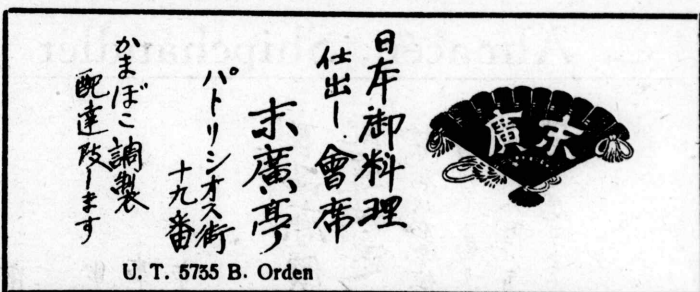 日本御料理
仕出し 會席
末廣亭
パトリシオス街
十九番
かまぼこ調製
配達致します
末廣
U. T. 5755 B. Orden